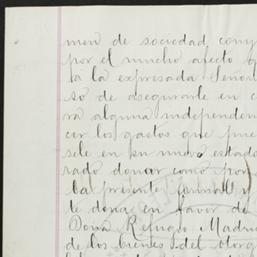 men de sociedad cony
por el mucho afecto q
la la expresada Señor
so de asegurarle en c
ra alguna independen
cer los gastos que pue
sele en su nuevo estado
rado donar como por
la presente
te dona en favor de
Doña Refugio Madri
de los bienes del otorg